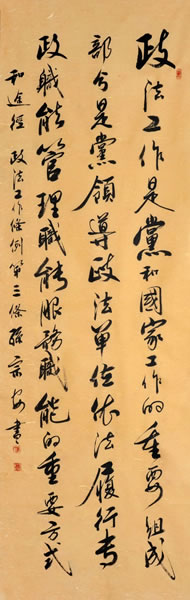 政法工作是黨和國家工作的重要組成
部分是黨領導政法單位依法履行專
政職能管理職能服務職能的重要方式
和途徑 政法工作條例第三條 書